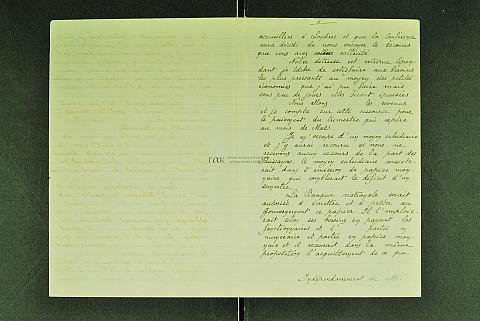 accueillies à Londres et que la Conférence
aura décidé de nous envoyer le secours
que vous avez sollicité.
Notre détresse est extrême. Cepen-
dant je tâche de satisfaire aux besoins
les plus pressants au moyen des petites
économies que j'ai pu faire mais
sous peu de jours elles seront épuisées
Nous allons les revenus
et je compte sur cette ressource pour
le paiement du trimestre qui expire
au mois de Mai.
Je m'occupe d'un moyen subsidiaire
et j'y aurai recours si nous ne
recevons aucun secours de la part des
Puissances. le moyen subsidiaire consiste-
rait dans l'émission de papier mon-
naie qui comblerait le déficit d'un
semestre.
La Banque nationale serait
autorisée à émettre et à prêter au
Gouvernement ce papier. Il l'emploie-
rait selon ses besoins en payant les
fonctionnaires et l' partie en
numéraire et partie en papier mon-
naie et il recevrait dans la même
proportion l'acquittement de ce
Indépendamment de cette
ΓΑΚ